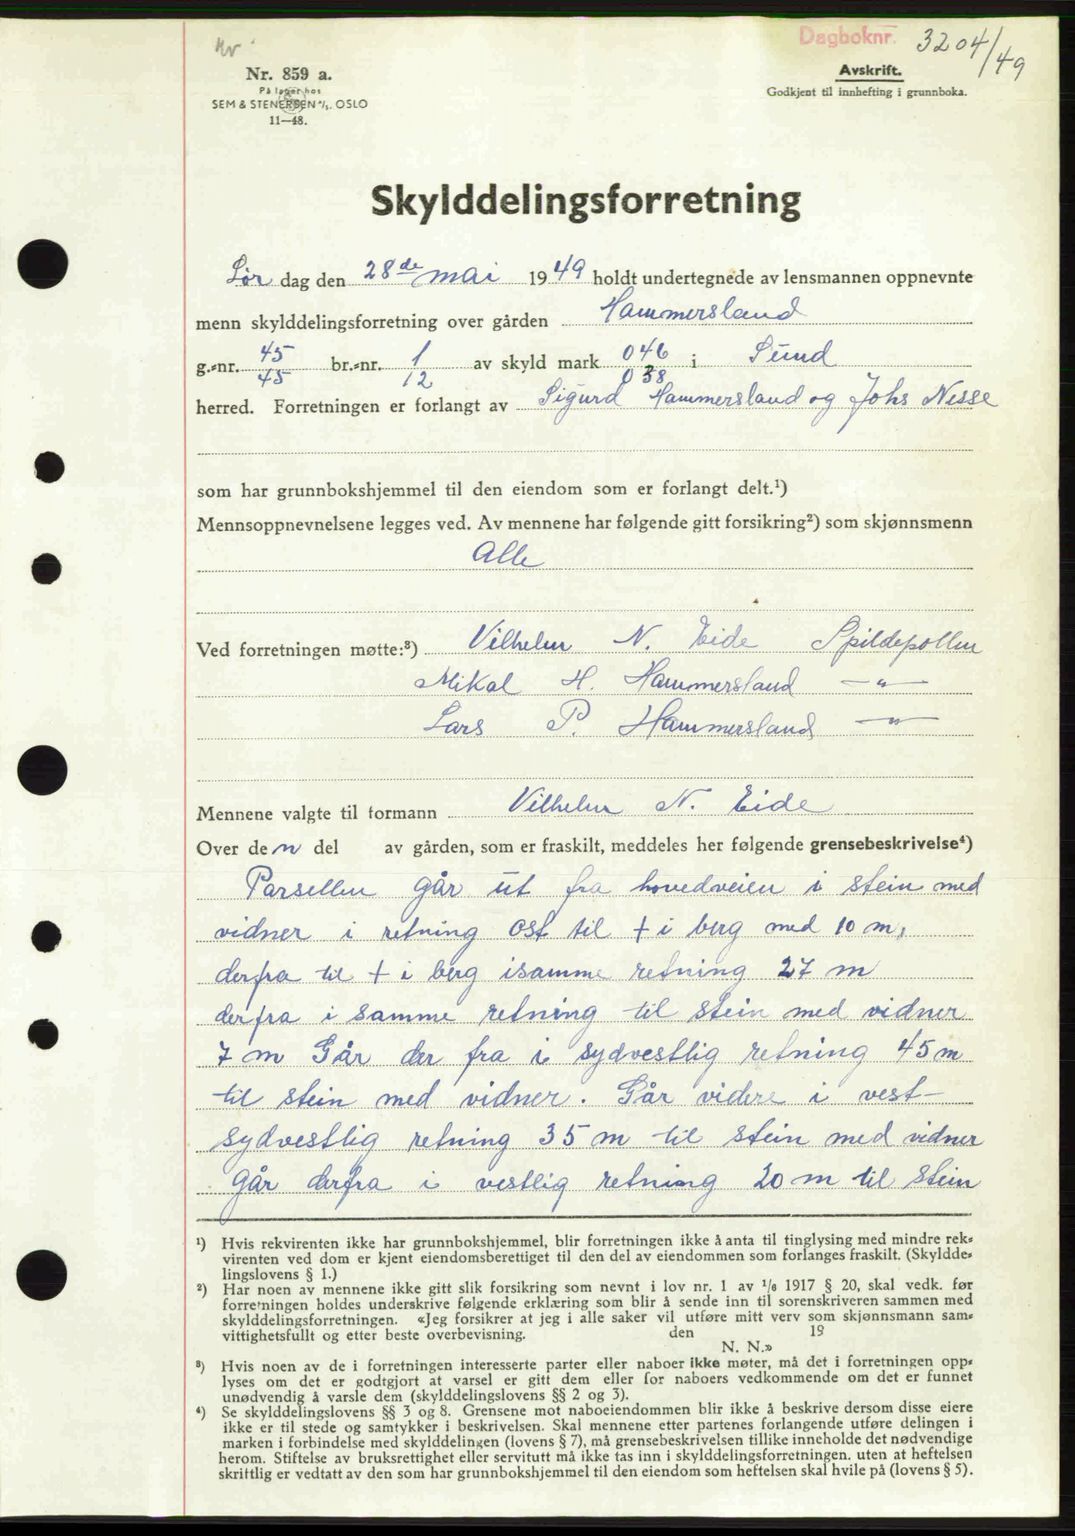 Dagboknr. 3204/49
Nr. 859 a.
På lager hos
SEM & STENERSEN A/S. OSLO
11—48.
Avskrift.
Godkjent til innhefting i grunnboka.
Skylddelingsforretning
Lør dag den 28de mai 1949 holdt undertegnede av lensmannen oppnevnte
menn skylddelingsforretning over gården Hammersland
g.-nr. 45 br.-nr. 1 av skyld mark 046 i Sund
45 12 038
herred. Forretningen er forlangt av Sigurd Hammersland og Johs Nesse
som har grunnbokshjemmel til den eiendom som er forlangt delt.¹)
Mennsoppnevnelsene legges ved. Av mennene har følgende gitt forsikring²) som skjønnsmenn
Alle
Ved forretningen møtte:³) Vilhelm N. Eide Spildepollen
Mikal H. Hammersland —"—
Lars P. Hammersland —"—
Mennene valgte til formann Vilhelm N. Eide
Over den del av gården, som er fraskilt, meddeles her følgende grensebeskrivelse⁴)
Parsellen går ut fra hovedveien i stein med
vidner i retning øst til + i berg med 10 m,
derfra til + i berg isamme retning 27 m
derfra i samme retning til stein med vidner
7 m Går der fra i sydvestlig retning 45 m
til stein med vidner. Går videre i vest-
sydvestlig retning 35 m til stein med vidner
går derfra i vestlig retning 20 m til stein
¹) Hvis rekvirenten ikke har grunnbokshjemmel, blir forretningen ikke å anta til tinglysing med mindre rek-
virenten ved dom er kjent eiendomsberettiget til den del av eiendommen som forlanges fraskilt. (Skyldde-
lingslovens § 1.)
²) Har noen av mennene ikke gitt slik forsikring som nevnt i lov nr. 1 av 1/6 1917 § 20, skal vedk. før
forretningen holdes underskrive følgende erklæring som blir å sende inn til sorenskriveren sammen med
skylddelingsforretningen. «Jeg forsikrer at jeg i alle saker vil utføre mitt verv som skjønnsmann sam-
vittighetsfullt og etter beste overbevisning. den 19
N. N.»
³) Hvis noen av de i forretningen interesserte parter eller naboer ikke møter, må det i forretningen opp-
lyses om det er godtgjort at varsel er gitt dem eller for naboers vedkommende om det er funnet
unødvendig å varsle dem (skylddelingslovens §§ 2 og 3).
⁴) Se skylddelingslovens §§ 3 og 8. Grensene mot naboeiendommen blir ikke å beskrive dersom disse eiere
ikke er til stede og samtykker i beskrivelsen. Skal mennene etter partenes forlangende utføre delingen i
marken i forbindelse med skylddelingen (lovens § 7), må grensebeskrivelsen tillike inneholde det nødvendige
herom. Stiftelse av bruksrettighet eller servitutt må ikke tas inn i skylddelingsforretningen. uten at heftelsen
skriftlig er vedtatt av den som har grunnbokshjemmel til den eiendom som heftelsen skal hvile på (lovens § 5).